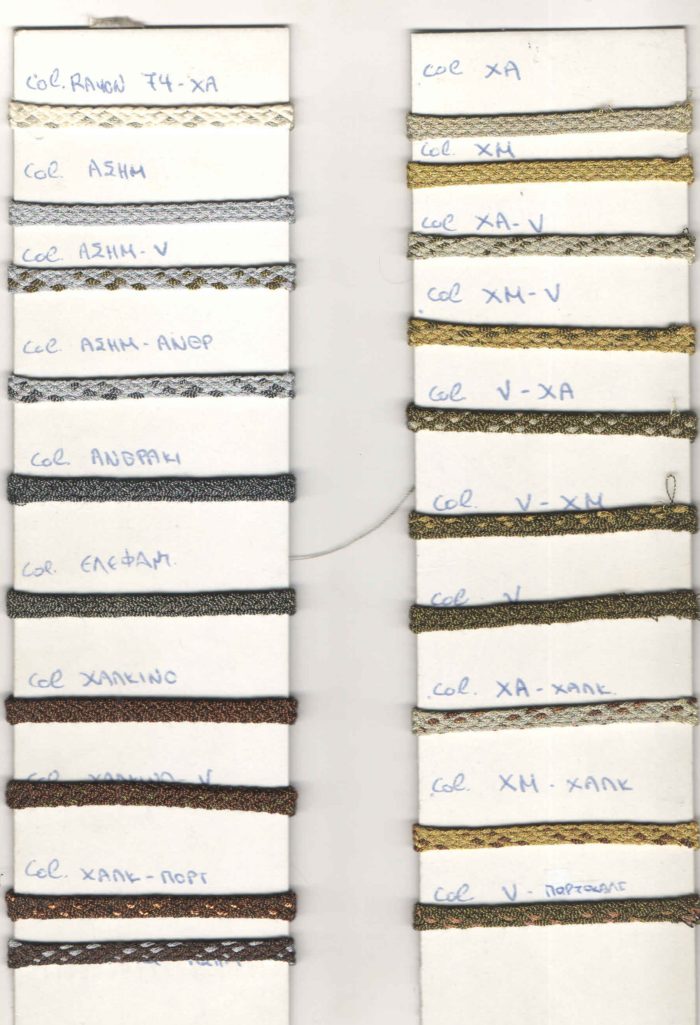 col. RAYON 74-XA
col. ΑΣΗΜ
col. ΑΣΗΜ-V
col. ΑΣΗΜ-ΑΝΘΡ
col. ΑΝΘΡΑΚΙ
col. ΕΛΕΦΑΝΤ.
col ΧΑΛΚΙΝΟ
col. ΧΑΛΚΙΝΟ-V
col. ΧΑΛΚ-ΠΟΡΤ
col ΧΑ
col. ΧΜ
col ΧΑ-V
col ΧΜ-V
col V-ΧΑ
col. V-ΧΜ
col V
col. ΧΑ-ΧΑΛΚ.
col. ΧΜ-ΧΑΛΚ
col V-ΠΟΡΤΟΚΑΛΙ